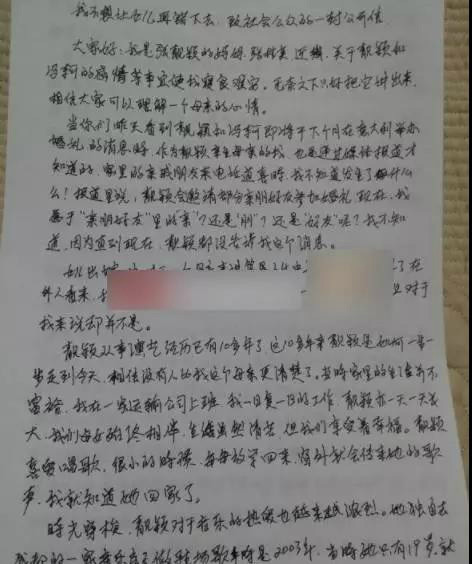 我不想让女儿再错下去，致社会公众的一封公开信
大家好：我是张靓颖的妈妈，张桂英，近期，关于靓颖和
冯轲的感情等事宜使我寝食难安。无奈之下只好把它讲出来，
相信大家可以理解一个母亲的心情。
当你们昨天看到靓颖和冯轲即将于下个月在意大利举办
婚礼的消息时，作为靓颖亲生母亲的我，也是通过媒体报道才
知道的，家里的亲戚朋友来电话道喜时，我不知道发生了什
么！报道里说，靓颖会邀请部分亲朋好友参加婚礼，现在，我
属于"亲朋好友"里的"亲"？还是"朋"？还是"好友"呢？我不知
道，因为直到现在，靓颖都没告诉我这个消息。
了在
外人看来，我
且对于
我来说却并不是。
靓颖从事演艺经历已有10多年了，这10多年来靓颖是如何一步一
步走到今天，相信没有人比我这个母亲更清楚了。当时家里的生活并不
富裕，我在一家运输公司上班，我一日复一日的工作，靓颖亦一天一天长
大，我们母女始终相伴，生活虽然清苦，但我们享受着幸福。靓颖
喜爱唱歌，很小的时候，每每放学回来，窗外就会传来她的歌
声，我就知道她回家了。
时光穿梭，靓颖对于音乐的热爱也越来越浓烈。她独自去
成都的一家音乐房子做驻场歌手时是2003年，当时她只有19岁，就